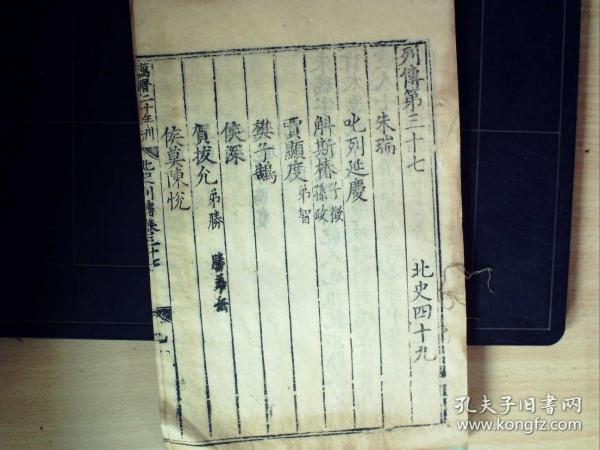 列傳第三十七
北史四十九
朱瑞
叱列延慶
斛斯椿 子徵 孫政
賈顯度 弟智
樊子鵠
侯深
賀拔允 弟勝 勝弟岳
侯莫陳悅
萬曆二十年刊
北史列傳卷三十七
孔夫子旧书网
www.kongfz.com